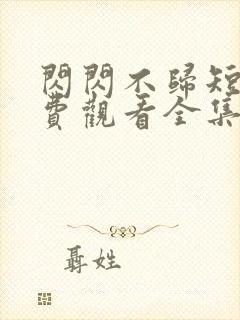 閃閃不歸短
費觀看全集
聶姓